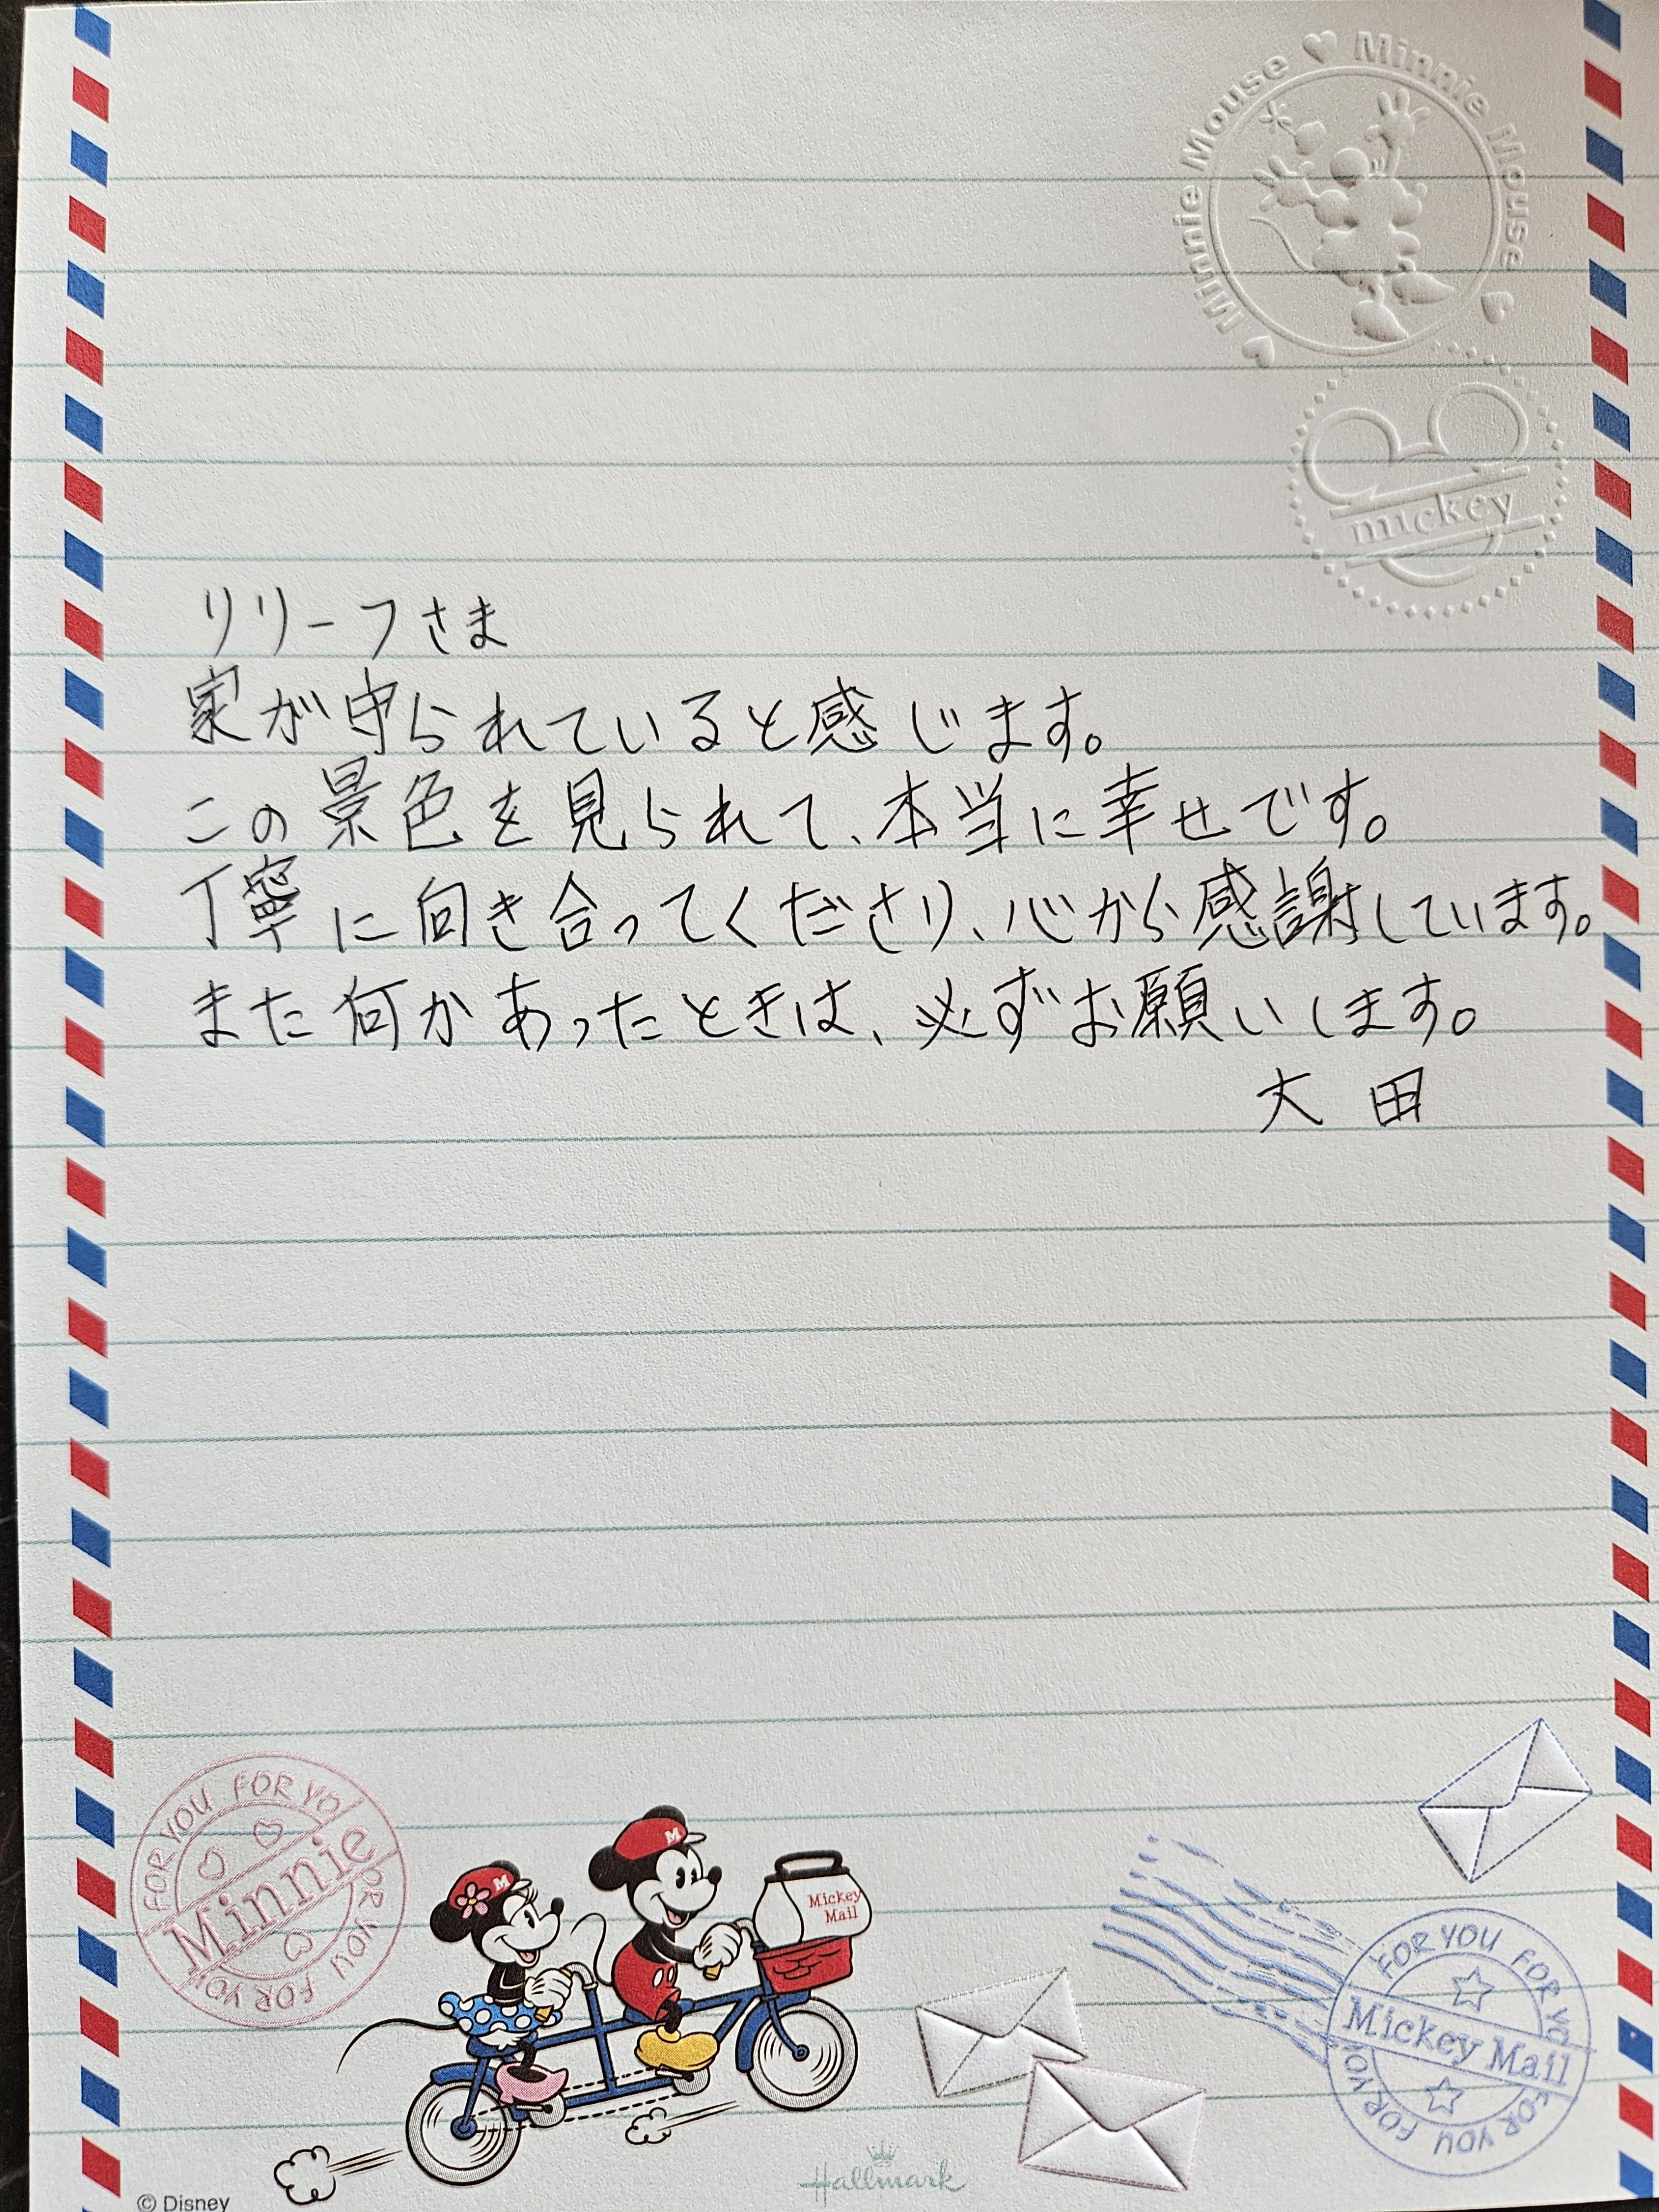 Minnie Mouse ♡ Minnie Mouse
mickey
リリーフさま
家が守られていると感じます。
この景色を見られて、本当に幸せです。
丁寧に向き合ってくださり、心から感謝しています。
また何かあったときは、必ずお願いします。
大田
FOR YOU FOR YOU FOR YOU FOR YOU
Minnie
M
M
Mickey
Mail
FOR YOU FOR YOU FOR YOU FOR YOU
Mickey Mail
Hallmark
© Disney